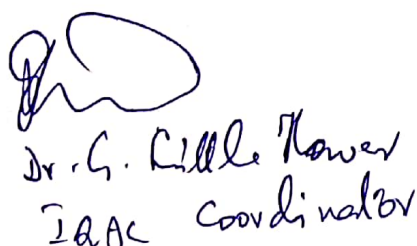 Dr. G. Little Flower
IQAC Coordinator